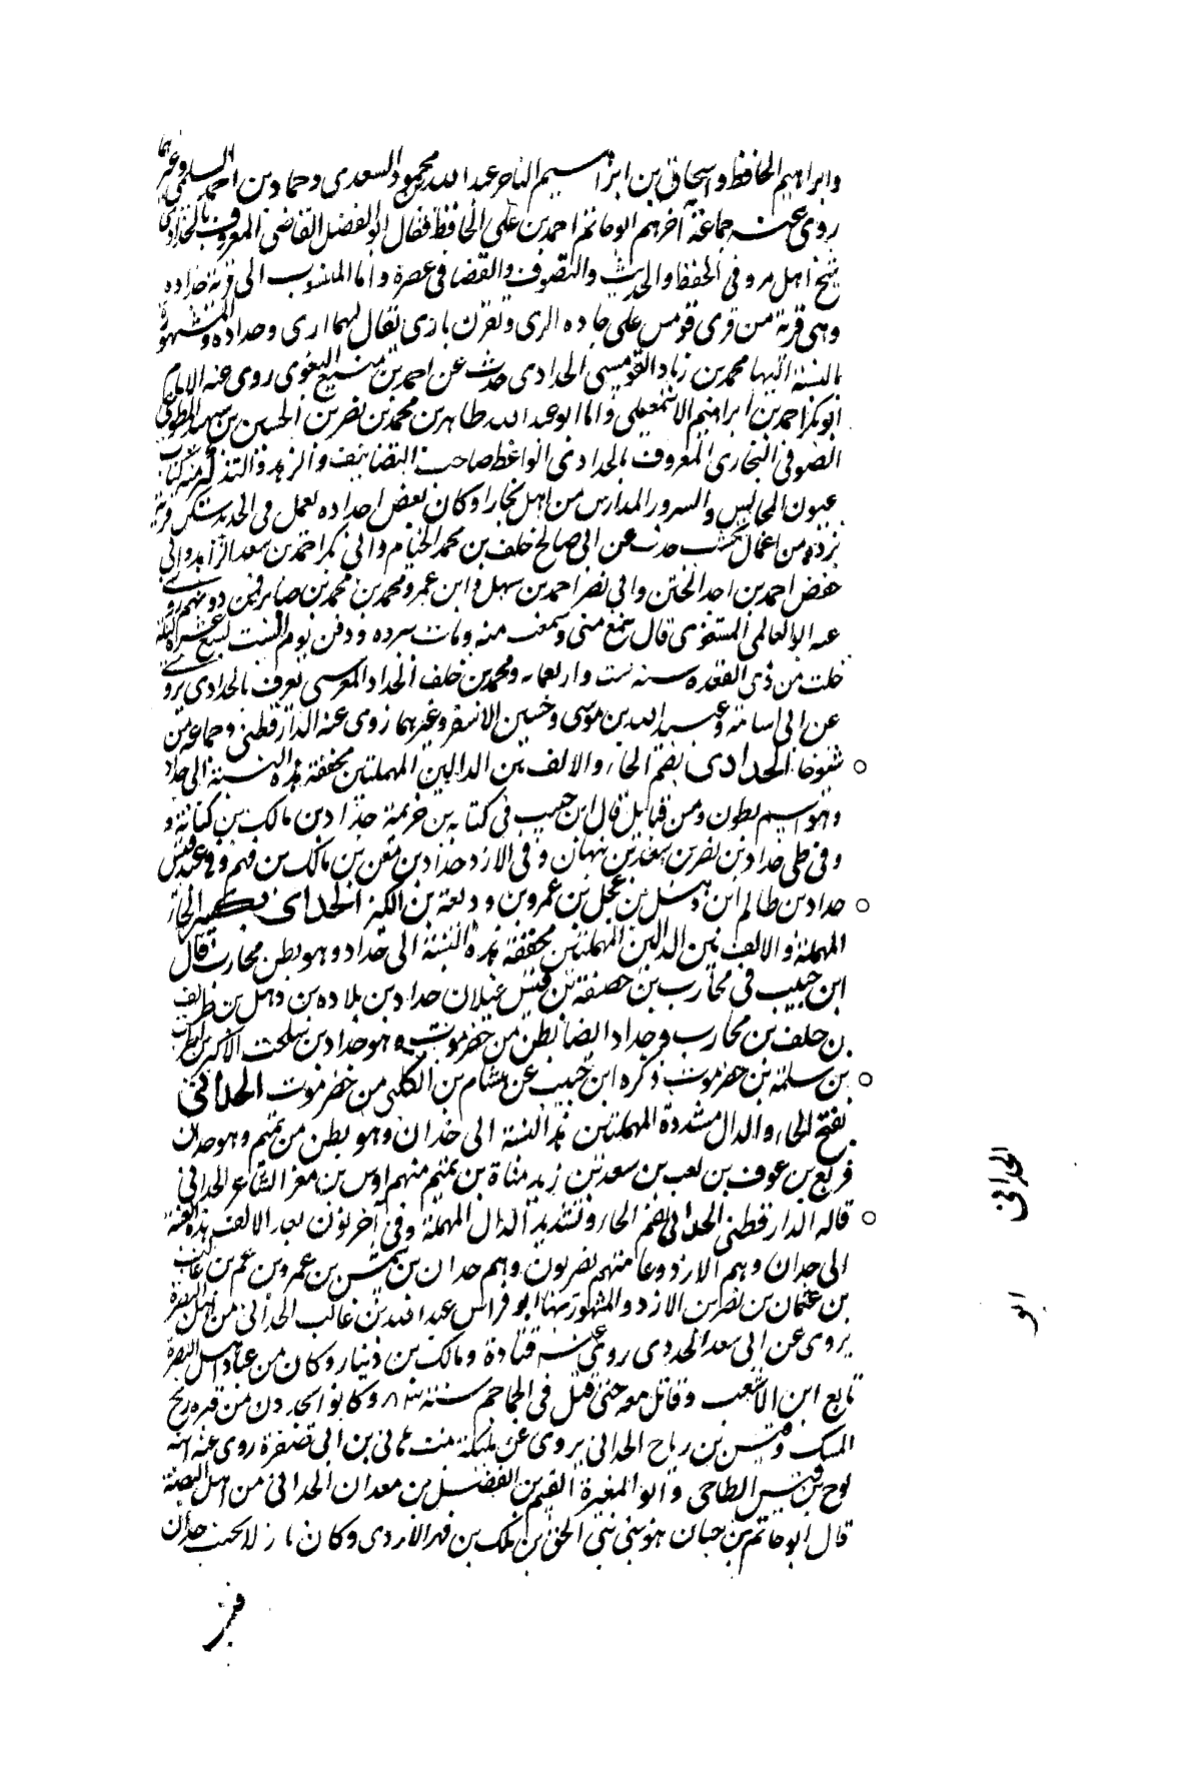 وابراهيم الحافظ واسحاق بن ابراهيم التاجر عبد الله بن محمود السعدى وحماد بن احمد السلمى وغيرهما
روى عنه جماعة آخرهم ابو حاتم احمد بن على الحافظ فقال ابو الفضل القاضى المعروف بالحدادى
شيخ اهل مرو فى الحفظ والحديث والتصوف والقضا فى عصره واما المنسوب الى قرية حداده
وهى قرية من قرى قومس على جاده الرى وتقرن باخرى يقال لهما ارى وحداده والمشهور
بالنسبة اليها محمد بن زياد القومسى الحدادى حدث عن احمد بن منيع البغوى روى عنه الامام
ابو بكر احمد بن ابراهيم الاسمعيلى واما ابو عبد الله طاهر بن محمد بن نصر بن الحسين بن سهل المطوعى
الصوفى البخارى المعروف بالحدادى الواعظ صاحب التصانيف والزهد والتذكير منه كتاب
عيون المجالس والسرور المدارس من اهل بخارا وكان بعض اجداده يعمل فى الحديد سكن قرية
بزده من اعمال كسب حدث عن ابى صالح خلف بن محمد الخيام وابى بكر احمد بن سعد الزاهد وابى
حفص احمد بن احد الختن وابى نصر احمد بن سهل وابن عمرو محمد بن محمد بن صابر فمن دونهم روى
عنه ابو العالمى المستغفرى قال سمع منى وسمعت منه ومات ببزده ودفن يوم السبت لسبع عشرة ليلة
خلت من ذى القعده سنه ست واربعمايه ومحمد بن خلف الحداد المقرى يعرف بالحدادى يروى
عن ابى اسامة وعبيد الله بن موسى وحسين الاشقر وغيرهما روى عنه الدارقطنى وجماعة من
شيوخنا الحدادى بضم الحاء والالف بين الدالين المهملتين مخففة هذه النسبة الى حداد
وهو اسم بطون ومن قبائل قال ابن حبيب فى كتابه بن خزيمة حداد بن مالك بن كنانة و
وفى طى حداد بن نصر بن سعد بن نبهان وفى الازد حداد بن معن بن مالك بن فهم وفى عبد قيس
حداد بن ظالم ابن ذهل بن عجل بن عمرو بن وديعة بن لكيز الحدادى بكسر الحاء
المهملة والالف بين الدالين المهملتين مخففة هذه النسبة الى حداد وهو بطن محارب قال
ابن حبيب فى محارب بن خصفة بن قيس عيلان حداد بن بلاده بن ذهل بن طريف
بن خلف بن محارب وحداد ايضا بطن من حضرموت وهو حداد بن شلخت الاكبر بن
بن سلمة بن حضرموت ذكره ابن حبيب عن هشام بن الكلبى من حضرموت الحدانى
بفتح الحاء والدال مشددة المهملتين هذه النسبة الى حدان وهو بطن من تميم وهو حدان
قريع بن عوف بن كعب بن سعد بن زيد مناة بن تميم منهم اوس بن مغرا الشاعر الحدانى
قاله الدارقطنى الحدانى بضم الحاء وتشديد الدال المهملة وفى آخره نون بعد الالف هذه النسبة
الى حدان وهم الازد وعامتهم بصريون وهم حدان بن شمس بن عمرو بن غنم بن غالب
بن عثمان بن نصر بن الازد والمشهور بها ابو فراس عبد الله بن غالب الحدانى من اهل البصرة
يروى عن ابى سعد الخدرى روى عنه قتادة ومالك بن دينار وكان من عباد اهل البصرة
تابع ابن الاشعث وقاتل معه حتى قتل فى الجماجم سنة ثلاث ٨٣ وكانوا يجدون من قبره ريح
المسك وقيس بن رباح الحدانى يروى عن مليكة بنت هانى بن ابى صفرة روى عنه ابنه
نوح بن قيس الطاحى وابو المغيرة القاسم بن الفضل بن معدان الحدانى من اهل البصرة
قال ابو حاتم بن حبان هو من بنى الحق بن ملك بن فهر الازدى وكان نازلا بحب حدان
الحدانى
ابو